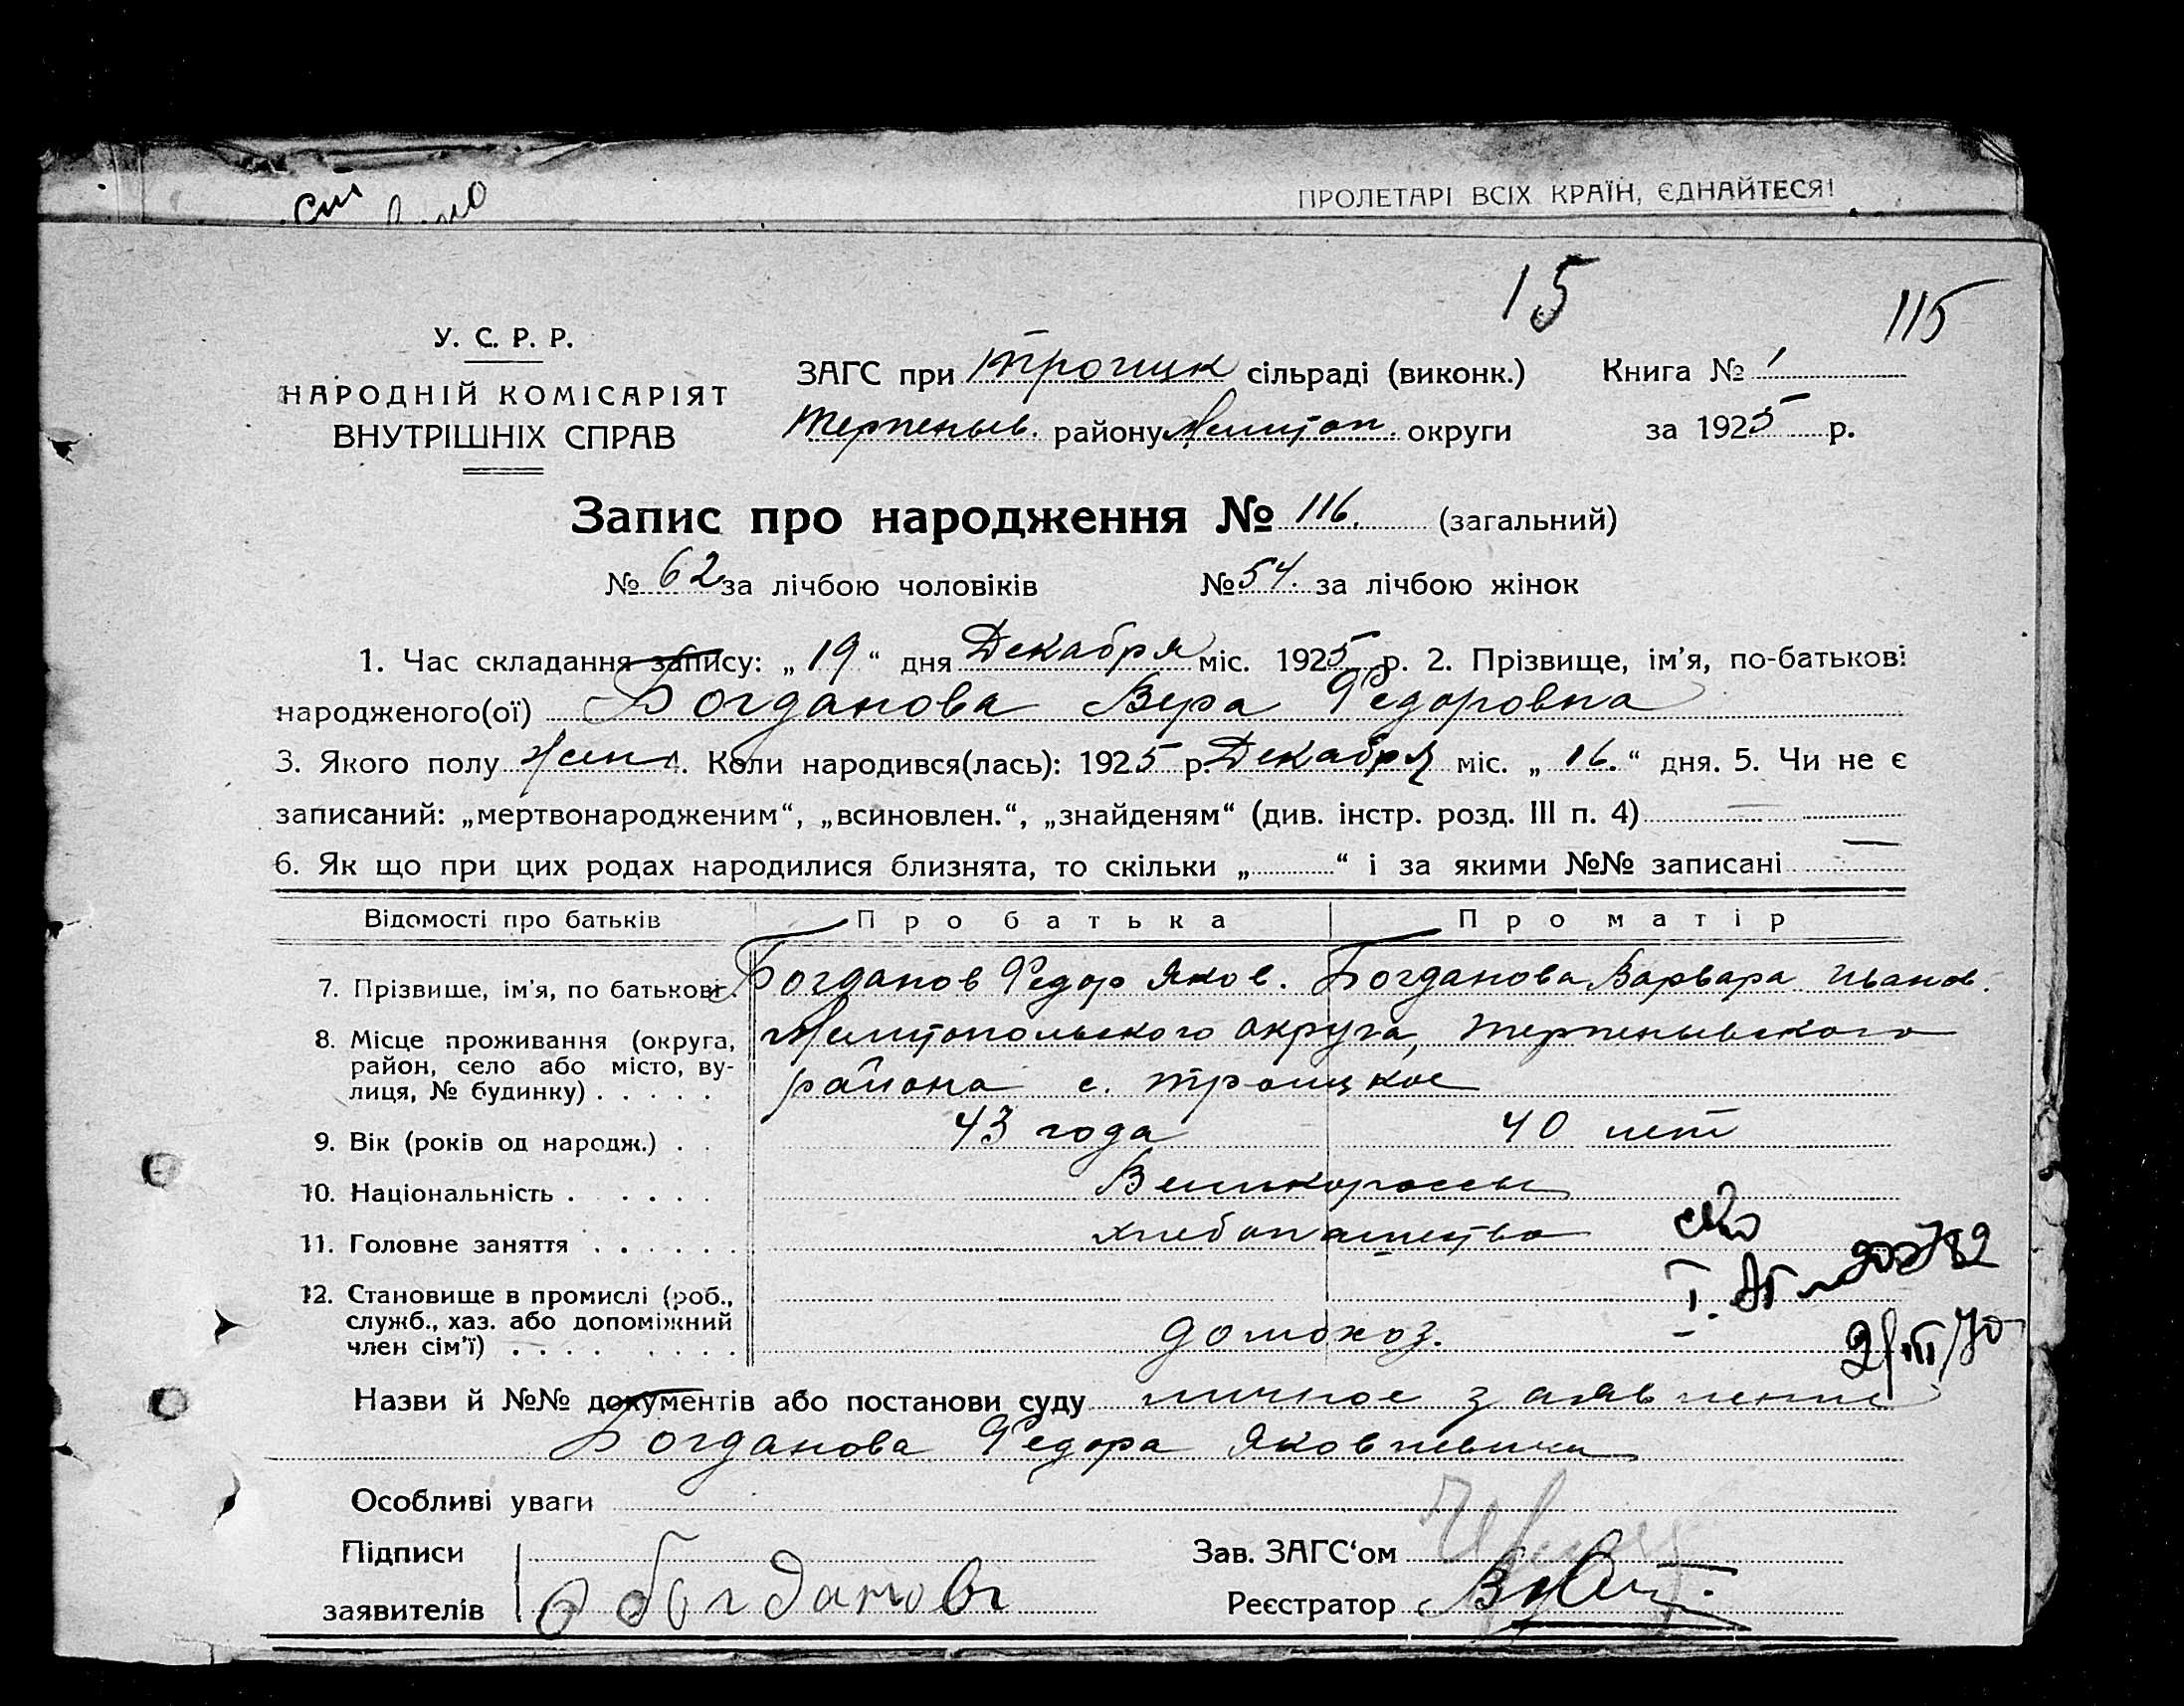 ПРОЛЕТАРІ ВСІХ КРАЇН, ЄДНАЙТЕСЯ!
15
115
У. С. Р. Р.
НАРОДНІЙ КОМІСАРІЯТ
ВНУТРІШНІХ СПРАВ
ЗАГС при Троицк сільраді (виконк.)
Терпеньев. району Мелитоп. округи
Книга № 1
за 1925 р.
Запис про народження № 116. (загальний)
№ 62 за лічбою чоловіків № 54. за лічбою жінок
1. Час складання запису: „ 19 “ дня Декабря міс. 1925 р. 2. Прізвище, ім'я, по-батькові
народженого(ої) Богданова Вера Федоровна
3. Якого полу жен. Коли народився(лась): 1925 р. Декабря міс. „ 16. “ дня. 5. Чи не є
записаний: „мертвонародженим“, „всиновлен.“, „знайденям“ (див. інстр. розд. III п. 4)
6. Як що при цих родах народилися близнята, то скільки „ “ і за якими №№ записані
Відомості про батьків Про батька Про матір
7. Прізвище, ім'я, по батькові. Богданов Федор Яков. Богданова Варвара Иванов.
8. Місце проживання (округа, район, село або місто, ву-
лиця, № будинку) Мелитопольского округа, Терпеньевского
района с. Троицкое
9. Вік (років од народж.) 43 года 40 лет
10. Національність Великороссы
11. Головне заняття хлебопашество
12. Становище в промислі (роб.,
служб., хаз. або допоміжний
член сім'ї) домохоз.
2/III/70
Назви й №№ документів або постанови суду личное заявление
Богданова Федора Яковлевича
Особливі уваги
Підписи
заявителів Ф Богдановъ
Зав. ЗАГС‘ом
Реєстратор